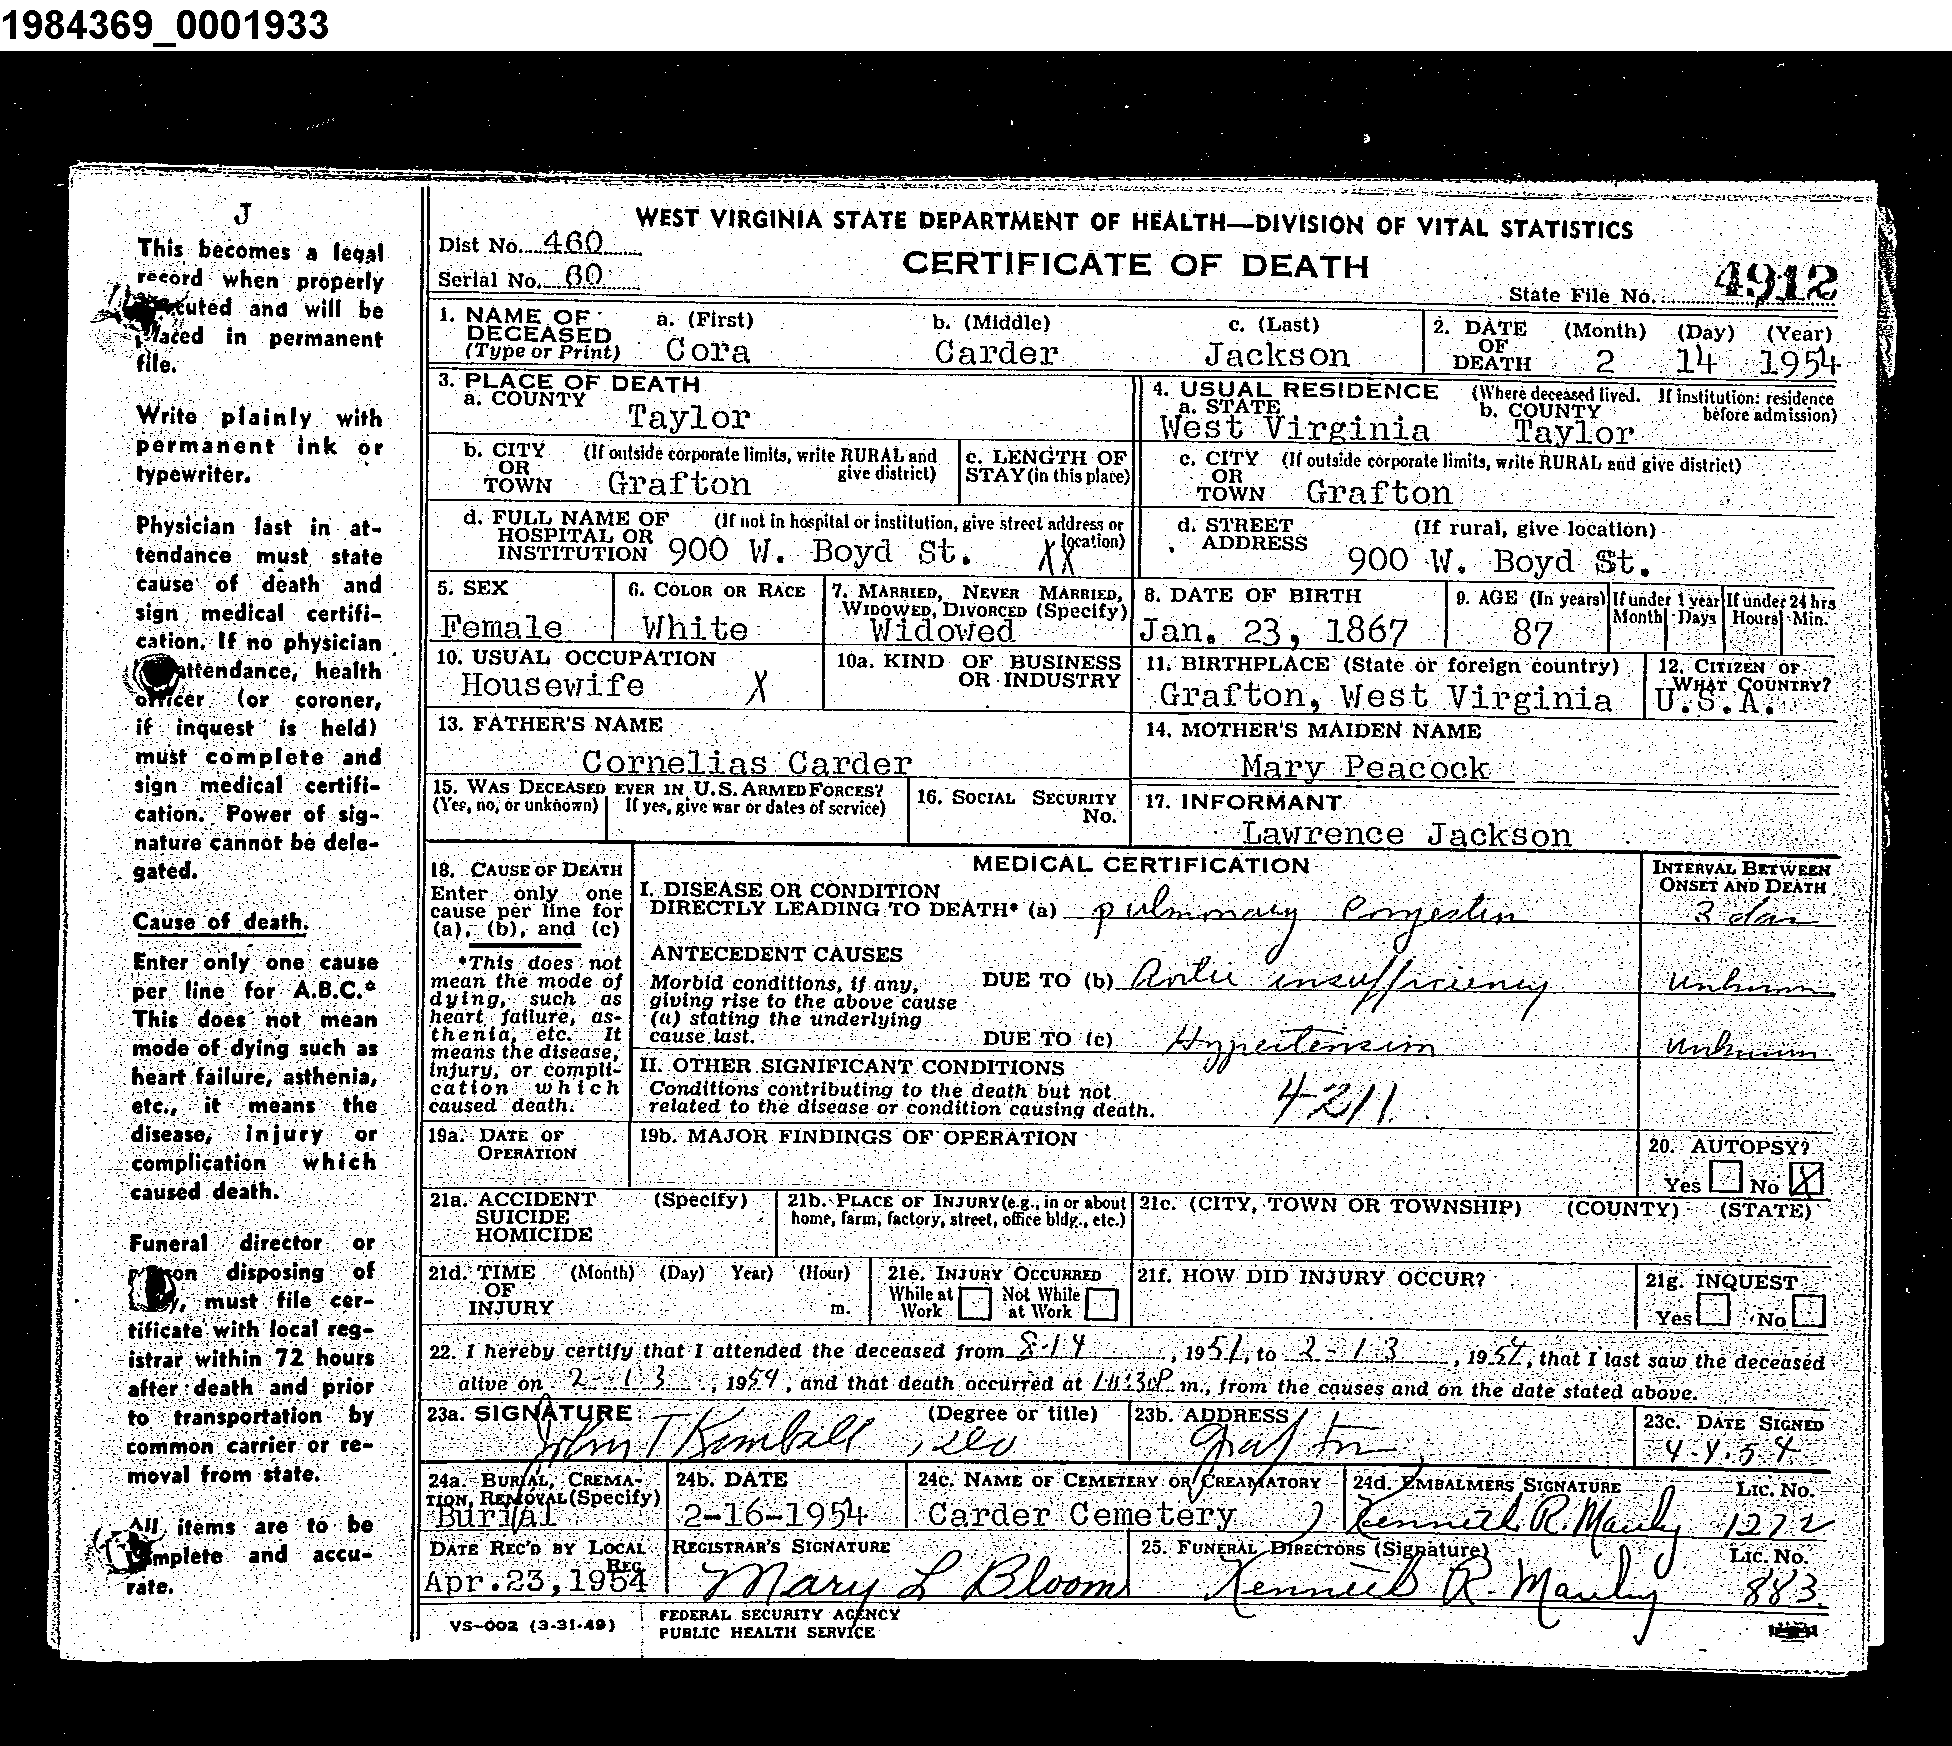 1984369_0001933
J
This becomes a legal
record when properly
executed and will be
placed in permanent
file.
Write plainly with
permanent ink or
typewriter.
Physician last in at-
tendance must state
cause of death and
sign medical certifi-
cation. If no physician
attendance, health
officer (or coroner,
if inquest is held)
must complete and
sign medical certifi-
cation. Power of sig-
nature cannot be dele-
gated.
Cause of death.
Enter only one cause
per line for A.B.C.*
This does not mean
mode of dying such as
heart failure, asthenia,
etc., it means the
disease, injury or
complication which
caused death.
Funeral director or
person disposing of
must file cer-
tificate with local reg-
istrar within 72 hours
after death and prior
to transportation by
common carrier or re-
moval from state.
All items are to be
complete and accu-
rate.
WEST VIRGINIA STATE DEPARTMENT OF HEALTH—DIVISION OF VITAL STATISTICS
Dist No. 460
CERTIFICATE OF DEATH
Serial No. 60
State File No. 4912
1. NAME OF DECEASED (Type or Print) a. (First) Cora b. (Middle) Carder c. (Last) Jackson
2. DATE OF DEATH (Month) (Day) (Year) 2 14 1954
3. PLACE OF DEATH
a. COUNTY Taylor
4. USUAL RESIDENCE (Where deceased lived. If institution: residence before admission)
a. STATE West Virginia b. COUNTY Taylor
b. CITY OR TOWN (If outside corporate limits, write RURAL and give district) Grafton
c. LENGTH OF STAY (in this place)
c. CITY OR TOWN (If outside corporate limits, write RURAL and give district) Grafton
d. FULL NAME OF HOSPITAL OR INSTITUTION (If not in hospital or institution, give street address or location) 900 W. Boyd St. XX
d. STREET ADDRESS (If rural, give location) 900 W. Boyd St.
5. SEX Female
6. COLOR OR RACE White
7. MARRIED, NEVER MARRIED, WIDOWED, DIVORCED (Specify) Widowed
8. DATE OF BIRTH Jan. 23, 1867
9. AGE (In years) 87 If under 1 year Month Days If under 24 hrs Hours Min.
10. USUAL OCCUPATION Housewife X
10a. KIND OF BUSINESS OR INDUSTRY
11. BIRTHPLACE (State or foreign country) Grafton, West Virginia
12. CITIZEN OF WHAT COUNTRY? U.S.A.
13. FATHER'S NAME Cornelias Carder
14. MOTHER'S MAIDEN NAME Mary Peacock
15. WAS DECEASED EVER IN U.S. ARMED FORCES? (Yes, no, or unknown) If yes, give war or dates of service)
16. SOCIAL SECURITY No.
17. INFORMANT Lawrence Jackson
18. CAUSE OF DEATH
Enter only one
cause per line for
(a), (b), and (c)
*This does not
mean the mode of
dying, such as
heart failure, as-
thenia, etc. It
means the disease,
injury, or compli-
cation which
caused death.
MEDICAL CERTIFICATION
INTERVAL BETWEEN ONSET AND DEATH
I. DISEASE OR CONDITION
DIRECTLY LEADING TO DEATH* (a) pulmonary congestion 3 days
ANTECEDENT CAUSES
Morbid conditions, if any, giving rise to the above cause (a) stating the underlying cause last.
DUE TO (b) Aortic insufficiency unknown
DUE TO (c) Hypertension unknown
II. OTHER SIGNIFICANT CONDITIONS
Conditions contributing to the death but not related to the disease or condition causing death.
4211
19a. DATE OF OPERATION
19b. MAJOR FINDINGS OF OPERATION
20. AUTOPSY?
Yes No X
21a. ACCIDENT SUICIDE HOMICIDE (Specify)
21b. PLACE OF INJURY (e.g., in or about home, farm, factory, street, office bldg., etc.)
21c. (CITY, TOWN OR TOWNSHIP) (COUNTY) (STATE)
21d. TIME OF INJURY (Month) (Day) Year) (Hour) m.
21e. INJURY OCCURRED While at Work Not While at Work
21f. HOW DID INJURY OCCUR?
21g. INQUEST Yes No
22. I hereby certify that I attended the deceased from 8-14, 1951, to 2-13, 1954, that I last saw the deceased
alive on 2-13, 1954, and that death occurred at 10:30P m., from the causes and on the date stated above.
23a. SIGNATURE (Degree or title) John T Kimball
23b. ADDRESS Grafton
23c. DATE SIGNED 4-4-54
24a. BURIAL, CREMATION, REMOVAL (Specify) Burial
24b. DATE 2-16-1954
24c. NAME OF CEMETERY OR CREAMATORY Carder Cemetery
24d. EMBALMERS SIGNATURE Kenneth R. Mauly Lic. No. 1272
DATE REC'D BY LOCAL REG. Apr. 23, 1954
REGISTRAR'S SIGNATURE Mary L Bloom
25. FUNERAL DIRECTORS (Signature) Kenneth R. Mauly Lic. No. 883
VS-002 (3-31-49)
FEDERAL SECURITY AGENCY
PUBLIC HEALTH SERVICE